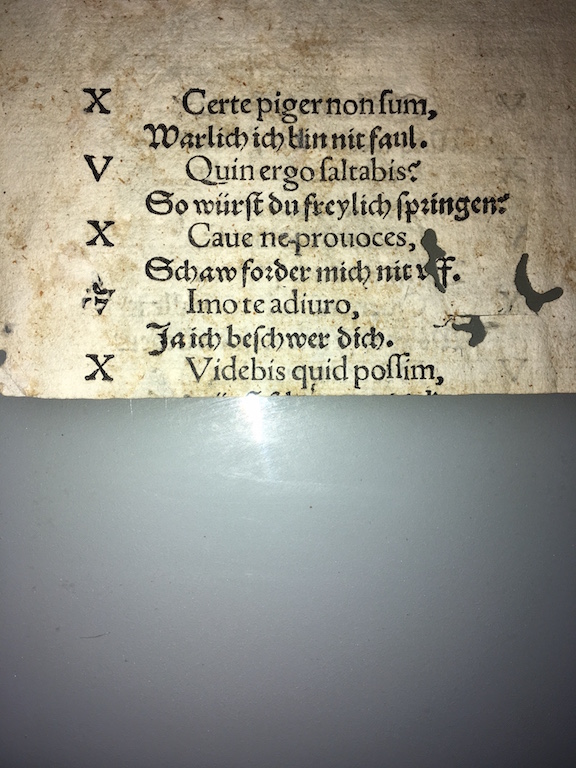 X Certe piger non ſum,
Warlich ich bin nit faul.
V Quin ergo ſaltabis?
So würſt du freylich ſpringen?
X Caue ne prouoces,
Schaw forder mich nit vff.
V Imo te adiuro,
Ja ich beſchwer dich.
X Videbis quid poſſim,